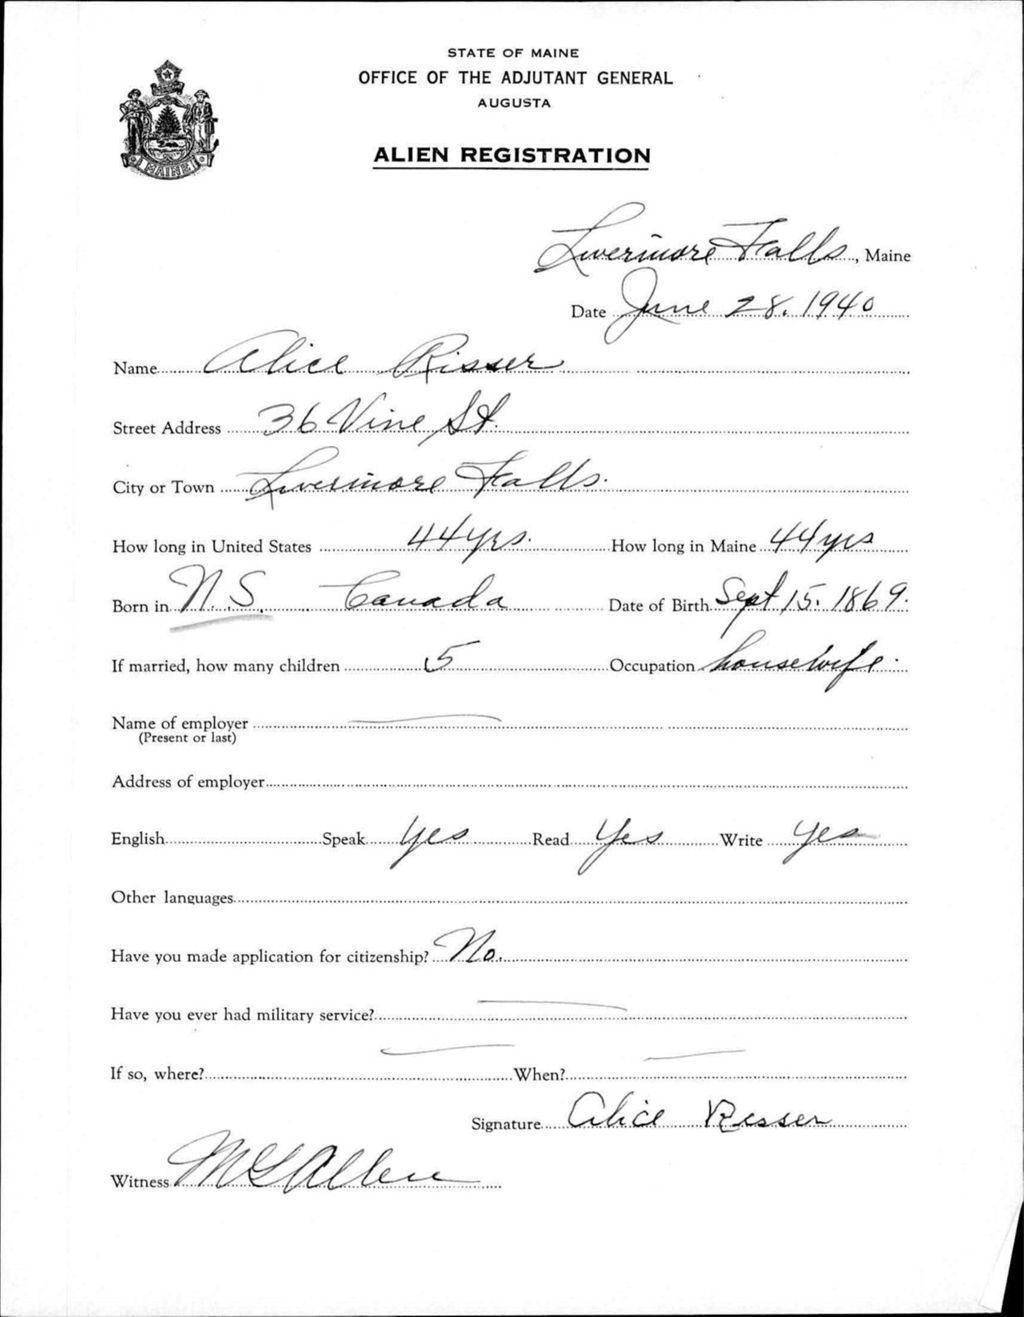 STATE OF MAINE
OFFICE OF THE ADJUTANT GENERAL
AUGUSTA
ALIEN REGISTRATION
MAINE
Livermore Falls, Maine
Date June 28. 1940
Name Alice Risser
Street Address 36 Vine St.
City or Town Livermore Falls.
How long in United States 44 yrs. How long in Maine 44 yrs
Born in N.S. Canada Date of Birth Sept 15. 1869.
If married, how many children 5 Occupation housewife.
Name of employer
(Present or last)
Address of employer
English Speak Yes Read Yes Write Yes
Other languages
Have you made application for citizenship? No.
Have you ever had military service?
If so, where? When?
Signature Alice Risser
Witness Allen